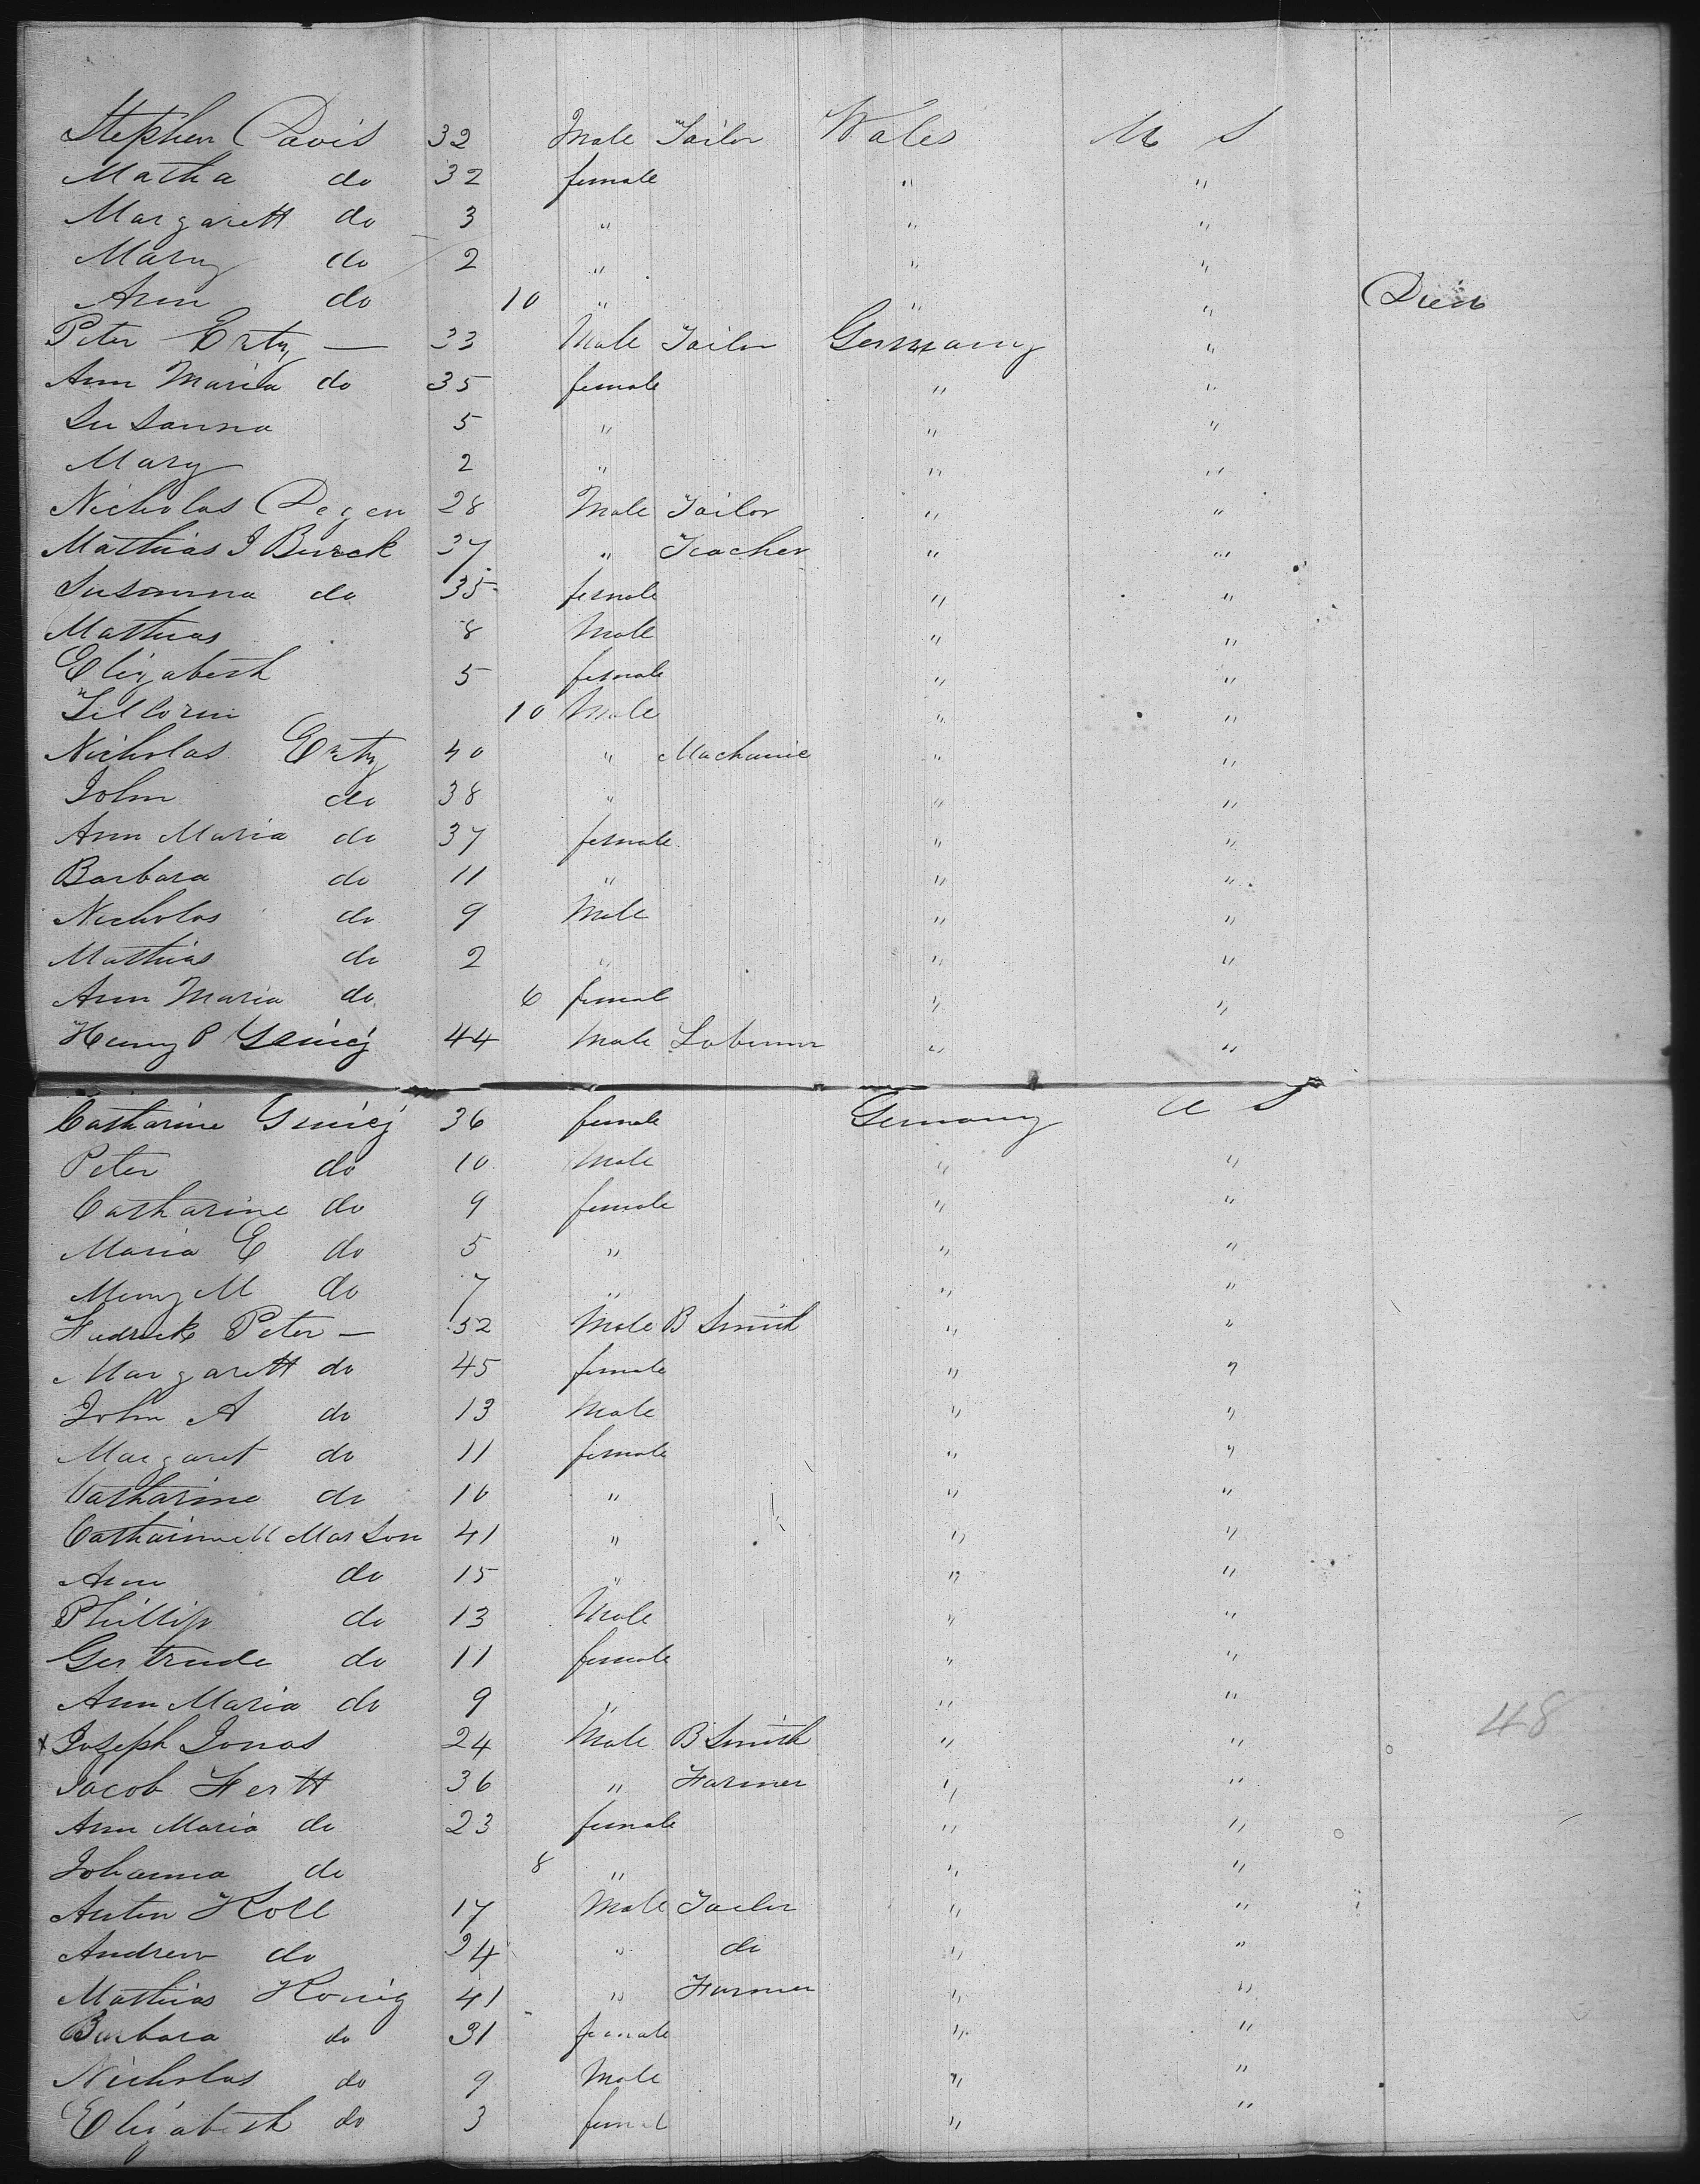 Stephen Davis 32 Male Tailor Wales U S
Matha do 32 female " "
Margarett do 3 " " "
Mary do 2 " " "
Ann do 10 " " " Died
Peter Erty — 33 Male Tailor Germany "
Ann Maria do 35 female " "
Susanna 5 " " "
Mary 2 " " "
Nicholas Degen 28 Male Tailor " "
Mathias J Burck 37 " Teacher " "
Susanna do 35 female " "
Mathias 8 Male " "
Elizabeth 5 female " "
10 Male " "
Nicholas Erty 40 " Machanic " "
John do 38 " " "
Ann Maria do 37 female " "
Barbara do 11 " " "
Nicholas do 9 Male " "
Mathias do 2 " " "
Ann Maria do 6 femal " "
Henry P 44 Male Laberur " "
Catharine 36 female Germany U S
Peter do 10 Male " "
Catharine do 9 female " "
Maria E do 5 " " "
M do 7 " " "
Fredrick Peter — 52 Male B Smith " "
Margarett do 45 female " "
John A do 13 Male " "
Margaret do 11 female " "
Catharine do 10 " " "
Marson 41 " " "
Ann do 15 " " "
Phillip do 13 Male " "
Gertrude do 11 female " "
Ann Maria do 9 " " "
x Joseph Jonas 24 Male B Smith " "
48
Jacob Fertt 36 " Farmer " "
Ann Maria do 23 female " "
Johanna do 8 " " "
Anton Koll 17 Male Tailor " "
Andrew do 24 " do " "
Mathias Konig 41 " Farmer " "
Barbara do 31 female " "
Nicholas do 9 Male " "
Elizabeth do 3 femal " "